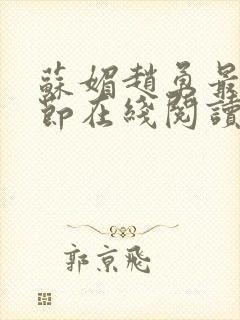 蘇媚趙勇最
節在綫閱讀
郭京飛